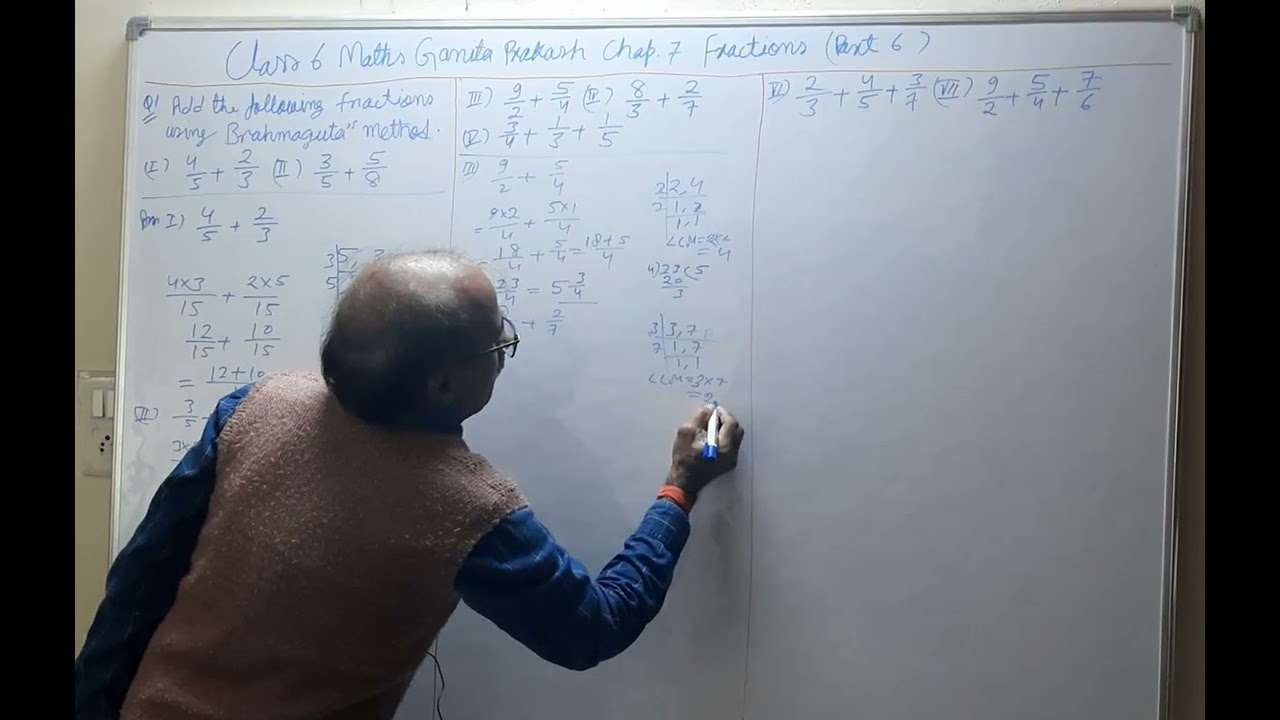 Class 6 Maths Ganita Prakash Chap. 7 Fractions (Part 6)
Q1 Add the following fractions
using Brahmaguta's method.
(I) 4/5 + 2/3 (II) 3/5 + 5/8
I) 4/5 + 2/3
3 | 5,
5
4×3/15 + 2×5/15
12/15 + 10/15
= 12+10
(II) 3/5
III) 9/2 + 5/4 (IV) 8/3 + 2/7
(V) 3/4 + 1/3 + 1/5
III) 9/2 + 5/4
= 9×2/4 + 5×1/4
18/4 + 5/4 = 18+5/4
23/4 = 5 3/4
+ 2/7
2 | 2, 4
2 | 1, 2
1, 1
LCM = 2×2
= 4
4) 23 ( 5
20
3
3 | 3, 7
7 | 1, 7
1, 1
LCM = 3×7
= 2
VI) 2/3 + 4/5 + 3/7 (VII) 9/2 + 5/4 + 7/6